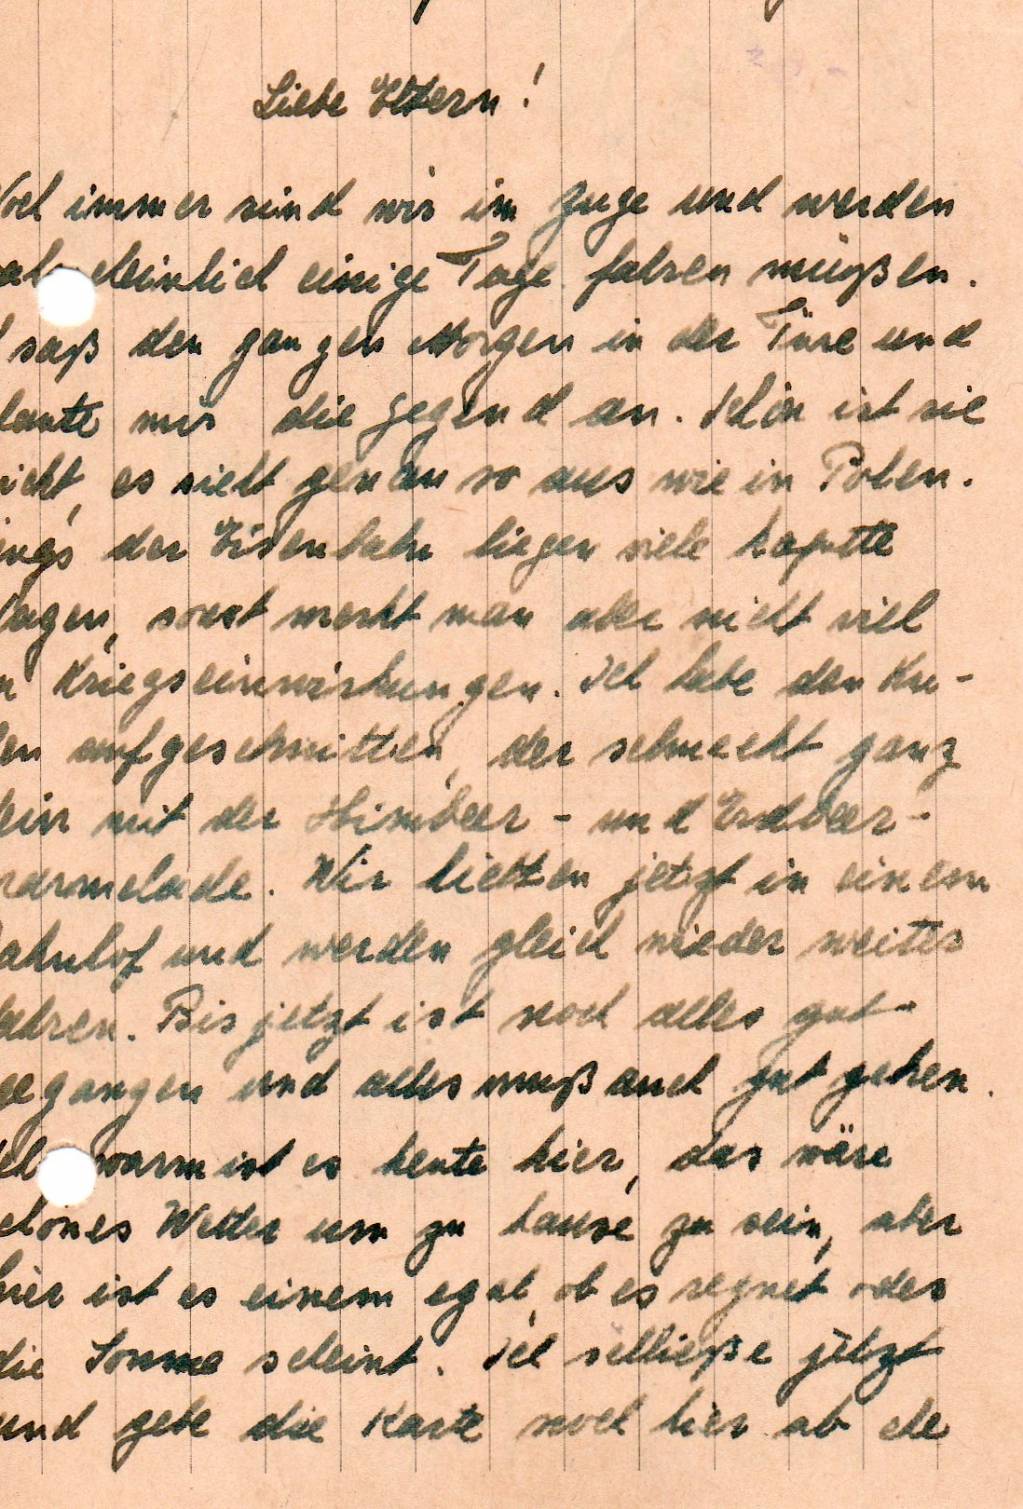 Liebe Eltern!
Noch immer sind wir im Zuge und werden
wahrscheinlich einige Tage fahren müßen.
saß den ganzen Morgen in der Türe und
mir die Gegend an. Schön ist sie
nicht, es sieht genau so aus wie in Polen.
längs der Eisenbahn liegen viele kaputte
Wagen, sonst merkt man aber nicht viel
Kriegseinwirkungen. Ich habe den Ku-
chen aufgeschnitten, der schmeckt ganz
fein mit der Himbeer- und Erdbeer-
marmelade. Wir hielten jetzt in einem
Bahnhof und werden gleich wieder weiter
fahren. Bis jetzt ist noch alles gut
gegangen und alles muß auch gut gehen.
warm ist es heute hier, das wäre
schönes Wetter um zu hause zu sein, aber
hier ist es einem egal, ob es regnet oder
die Sonne scheint. Ich schließe jetzt
und gebe die Karte noch hier ab ehe